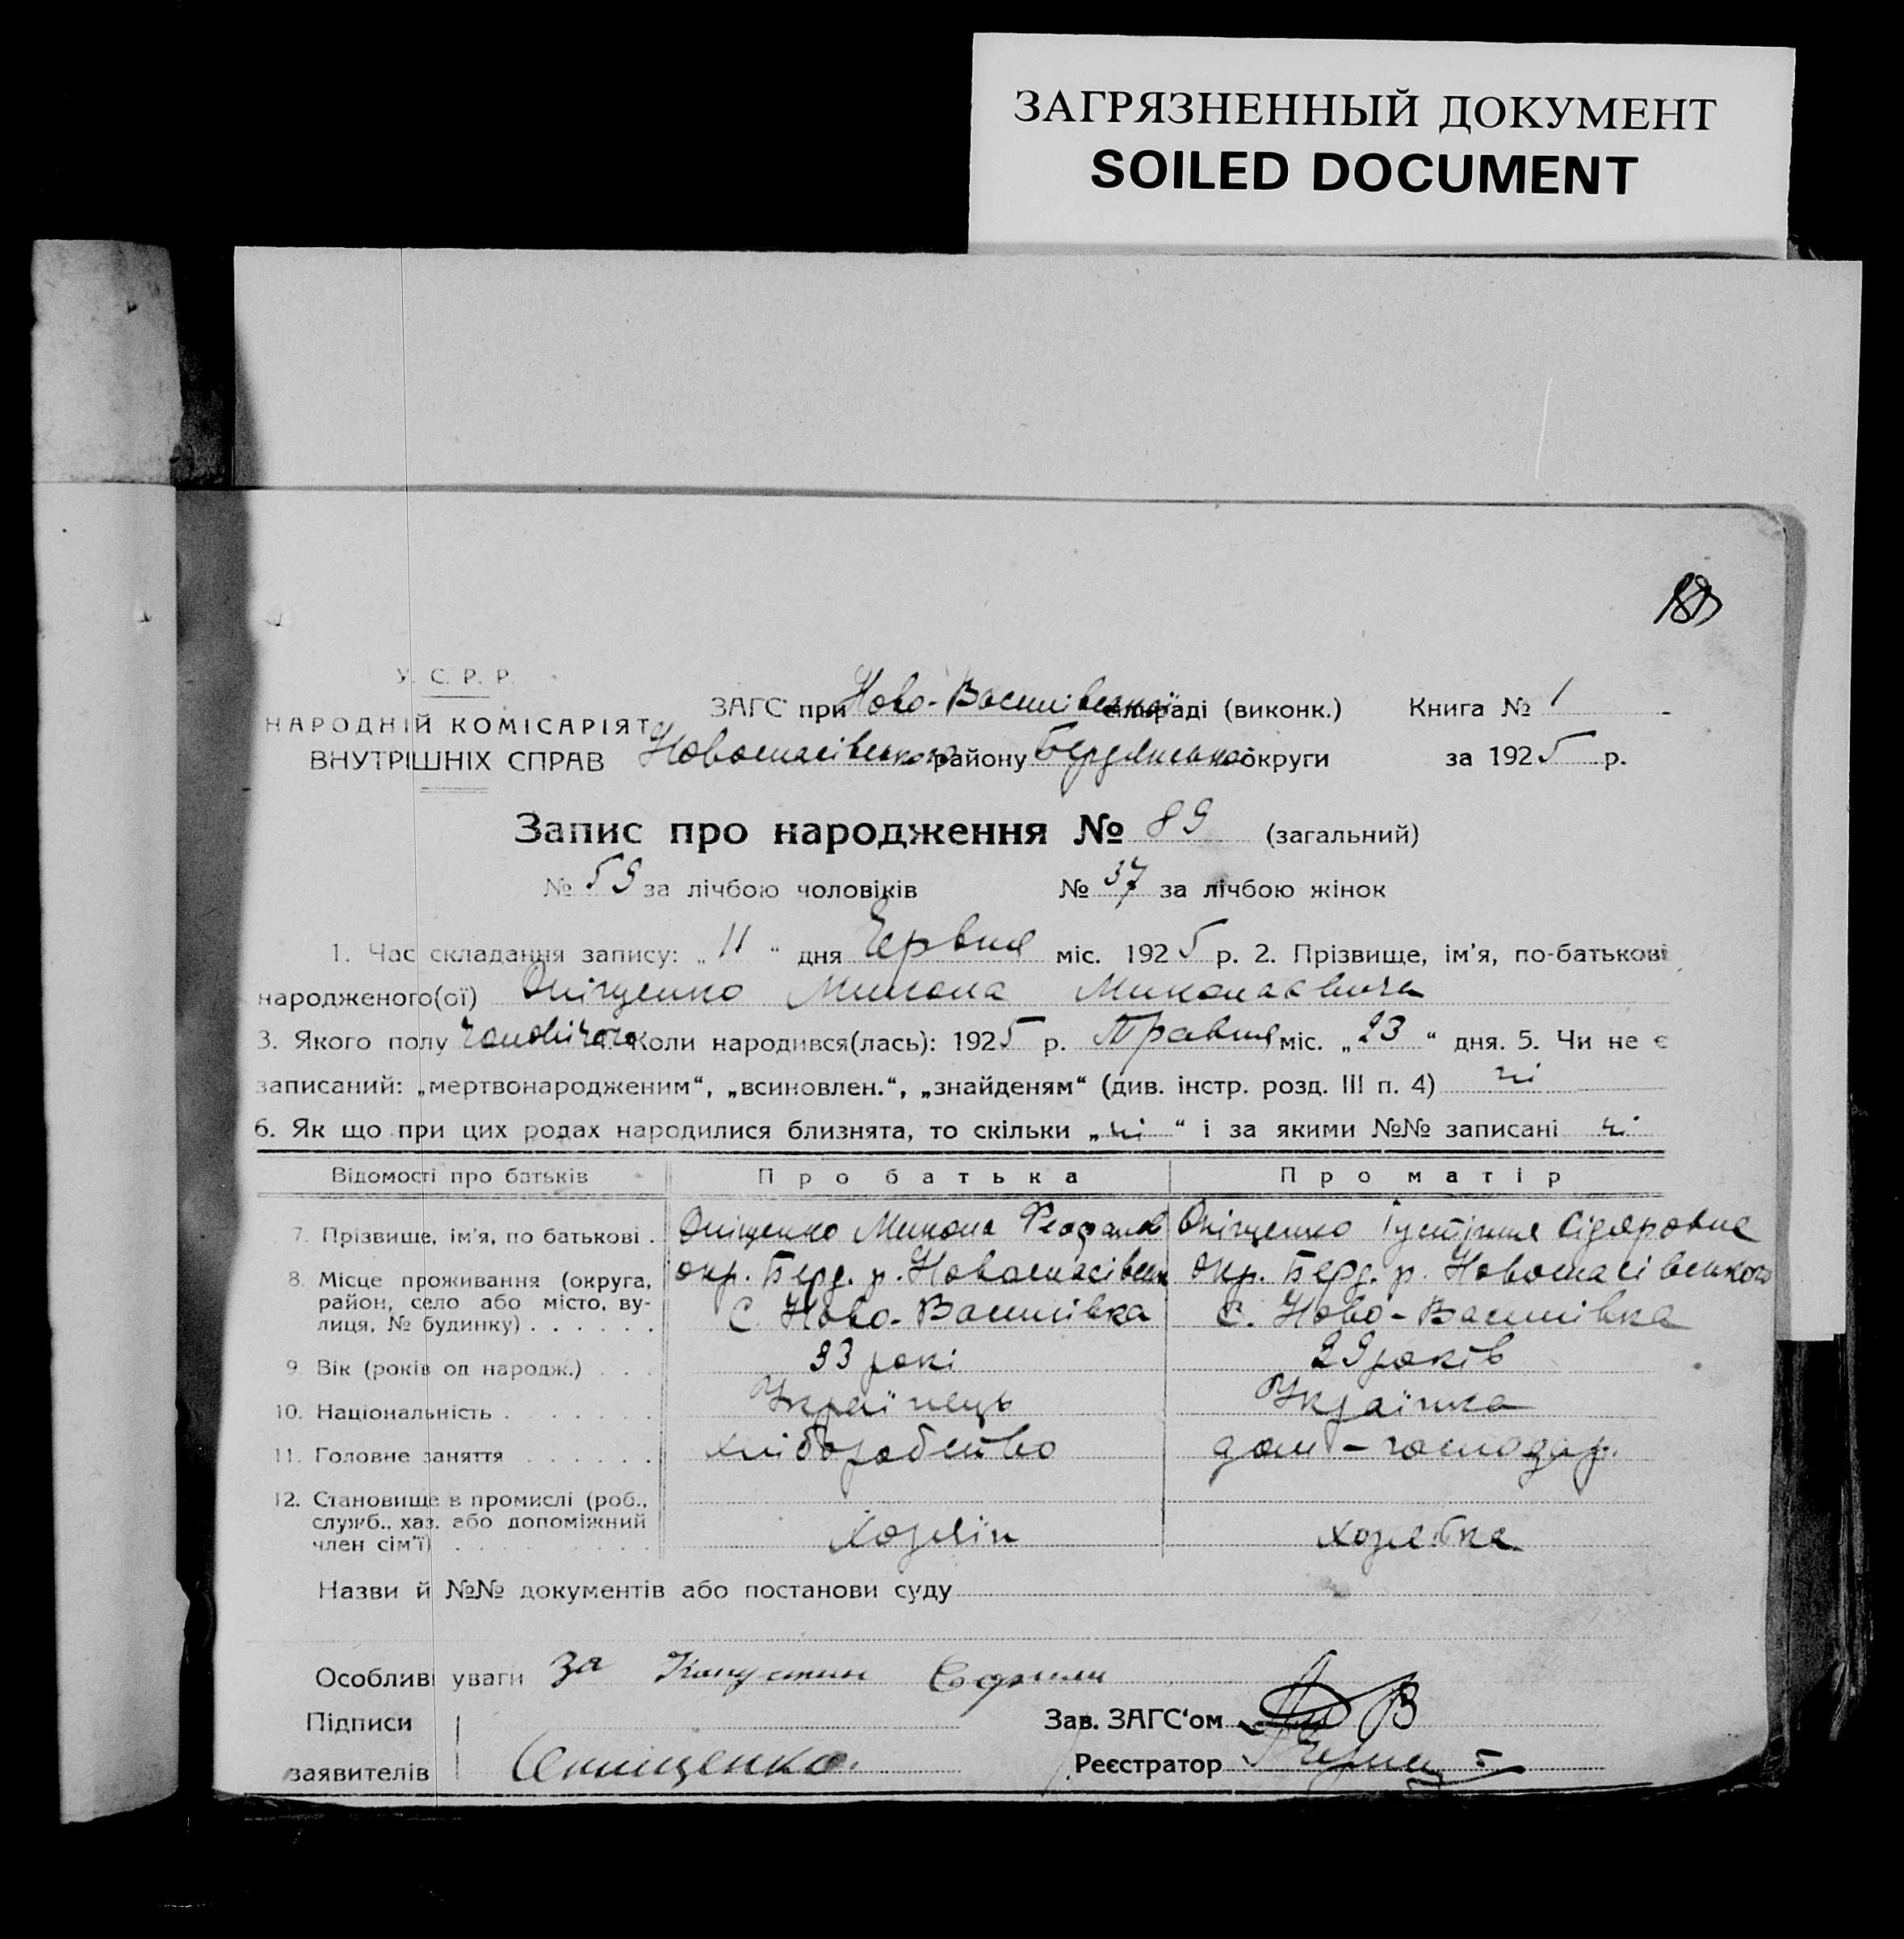 ЗАГРЯЗНЕННЫЙ ДОКУМЕНТ
SOILED DOCUMENT
У. С. Р. Р.
НАРОДНІЙ КОМІСАРІЯТ
ВНУТРІШНІХ СПРАВ
ЗАГС при Ново-Василівської сільраді (виконк.) Книга № 1
Новоспасівського району Бердянської округи за 1925 р.
Запис про народження № 89 (загальний)
№ 59 за лічбою чоловіків № 37 за лічбою жінок
1. Час складання запису: „ 11 “ дня Червня міс. 1925 р. 2. Прізвище, ім'я, по-батькові
народженого(ої) Оніщенко Микола Миколаєвич
3. Якого полу чоловічого Коли народився(лась): 1925 р. Травня міс. „ 23 “ дня. 5. Чи не є
записаний: „мертвонародженим“, „всиновлен.“, „знайденям“ (див. інстр. розд. III п. 4) ні
6. Як що при цих родах народилися близнята, то скільки „ ні “ і за якими №№ записані ні
Відомості про батьків Про батька Про матір
7. Прізвище, ім'я, по батькові . Оніщенко Микола Оніщенко Іустінія Сідаровна
8. Місце проживання (округа, район, село або місто, вулиця, № будинку) . . . . . . окр. Берд. р. Новоспасівськ окр. Берд. р. Новоспасівського
С. Ново-Василівка С. Ново-Василівка
9. Вік (років од народж.) . . . 33 рокі 29 років
10. Національність . . . . . . . Українець Українка
11. Головне заняття . . . . . . хліборобство дом-господар.
12. Становище в промислі (роб., служб., хаз. або допоміжний член сім'ї) . . . . . . . . . Хозяїн хозяйка
Назви й №№ документів або постанови суду
Особливі уваги за
Підписи
заявителів Онищенко.
Зав. ЗАГС'ом
Реєстратор